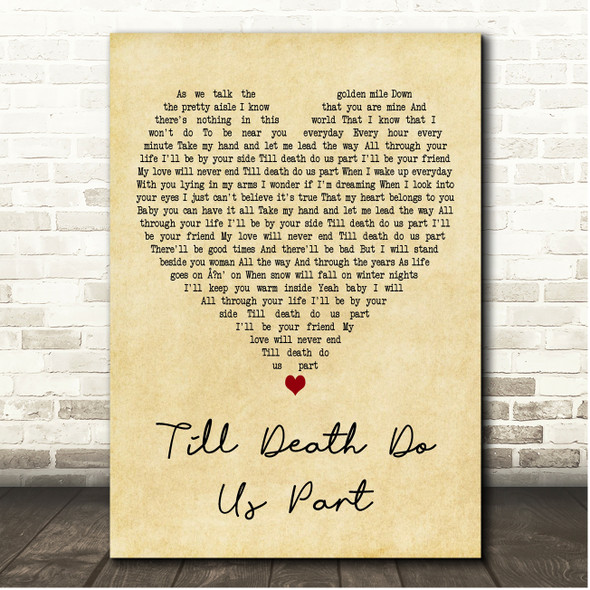 As we talk the golden mile Down
the pretty aisle I know that you are mine And
there's nothing in this world That I know that I
won't do To be near you everyday Every hour every
minute Take my hand and let me lead the way All through your
life I'll be by your side Till death do us part I'll be your friend
My love will never end Till death do us part When I wake up everyday
With you lying in my arms I wonder if I'm dreaming When I look into
your eyes I just can't believe it's true That my heart belongs to you
Baby you can have it all Take my hand and let me lead the way All
through your life I'll be by your side Till death do us part I'll
be your friend My love will never end Till death do us part
There'll be good times And there'll be bad But I will stand
beside you woman All the way And through the years As life
goes on Ã?n' on When snow will fall on winter nights
I'll keep you warm inside Yeah baby I will
All through your life I'll be by your
side Till death do us part
I'll be your friend My
love will never end
Till death do
us part
Till Death Do
Us Part